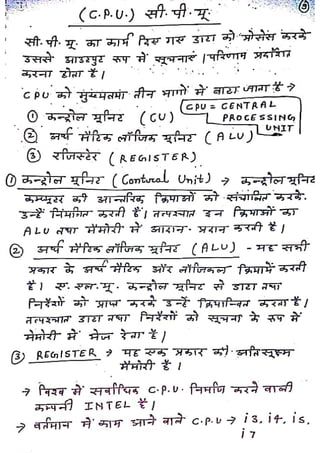 (C.P.U.) सी. पी. यू.
सी. पी. यू. का कार्य दिए गए डाटा को प्रोसेस करके
उससे आउटपुट रूप में सूचनाएं / परिणाम प्रदर्शित
करना होता है।
CPU को मुख्यतमां तीन भागों में बाटा जाता है →
① कन्ट्रोल यूनिट (CU)
CPU = CENTRAL
PROCESSING
UNIT
② अर्थ मैटिक लॉजिक यूनिट (ALU)
③ रजिस्टर (REGISTER)
① कन्ट्रोल यूनिट (Contraol Unit) → कन्ट्रोल यूनिट
कम्प्यूटर की आन्तरिक क्रियाओं को संचालित करके.
उन्हें नियमित करती है। तत्पश्चात इन क्रियाओं का
ALU तथा मेमोरी में आदान-प्रदान करती है।
② अर्थ मैटिक लॉजिक यूनिट (ALU) - यह सभी
प्रकार के अर्थ मैटिक और लॉजिकल क्रियायें करती
है। ए. एल. यू. कन्ट्रोल यूनिट से डाटा तथा
निर्देशों को प्राप्त करके उन्हें क्रियान्वित करता है।
तत्पश्चात डाटा तथा निर्देशों को सूचना के रूप में
मेमोरी में भेज देता है।
③ REGISTER → यह एक प्रकार की अतिसूक्ष्म
मेमोरी है।
→ विश्व में सर्वाधिक C.P.U. निर्माण करने वाली
कम्पनी INTEL है।
→ वर्तमान में काम आने वाले C.P.U → i3, i4, i5,
i7